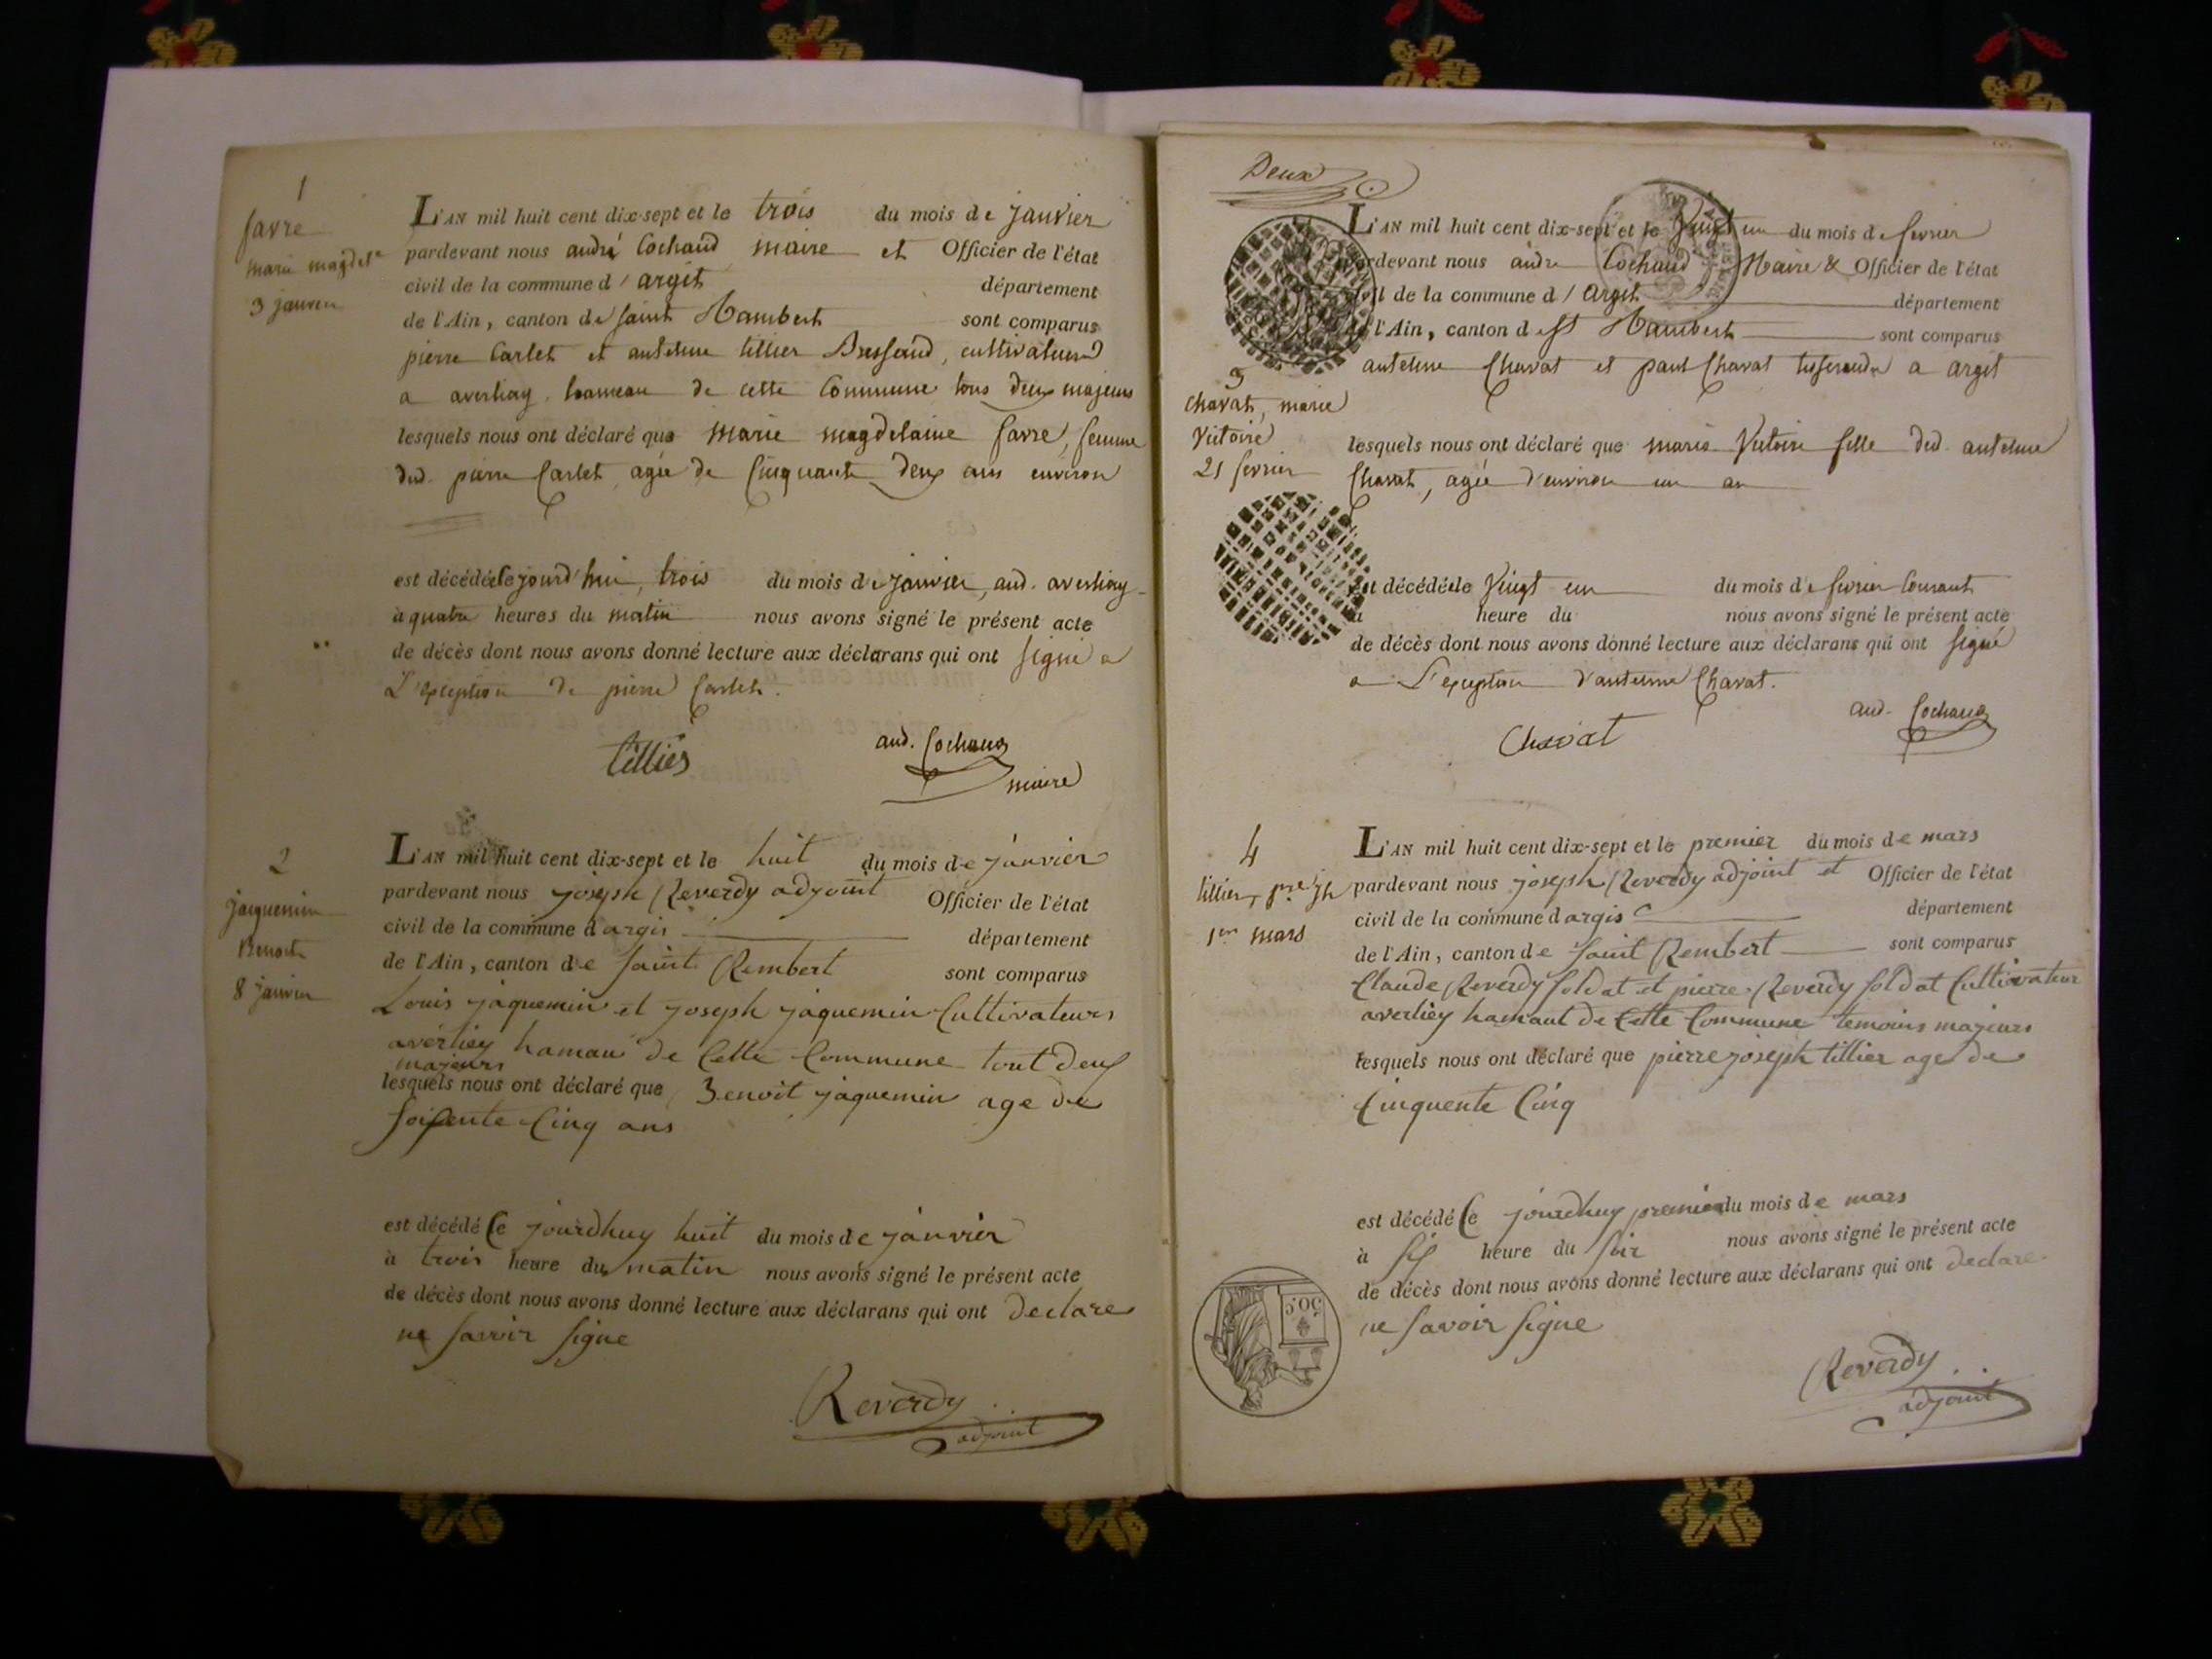 1
favre
marie magdel^e
3 janvier
L'AN mil huit cent dix-sept et le trois du mois de janvier
pardevant nous andré Cochaud maire et Officier de l'état
civil de la commune d'argit département
de l'Ain, canton de saint Rambert sont comparus
pierre Carlet et antelme tillier Bressand, cultivateurs
a averliay, hameau de cette Commune tous deux majeurs
lesquels nous ont déclaré que marie magdelaine favre, femme
dud. pierre Carlet, agée de Cinquante deux ans environ
est décédée ce jourd'hui, trois du mois de janvier, aud. averliay
à quatre heures du matin nous avons signé le présent acte
de décès dont nous avons donné lecture aux déclarans qui ont signé a
L'exception de pierre Carlet.
tilliés
and. Cochaud
maire
2
jacquemin
Benoit
8 janvier
L'AN mil huit cent dix-sept et le huit du mois de janvier
pardevant nous joseph Reverdy adjoint Officier de l'état
civil de la commune d argis département
de l'Ain, canton de saint Rembert sont comparus
Louis jaquemin et joseph jaquemin Cultivateurs
averliey hamau de Cette Commune tout deux
majeurs
lesquels nous ont déclaré que Benoit jaquemin age de
soisente Cinq ans
est décédé Ce jourdhuy huit du mois de janvier
à trois heure du matin nous avons signé le présent acte
de décès dont nous avons donné lecture aux déclarans qui ont declare
ne savoir signe
Reverdy
adjoint
Deux
L'AN mil huit cent dix-sept et le Vingt un du mois de fevrier
pardevant nous andre Cochaud Maire & Officier de l'état
civil de la commune d'Argit département
de l'Ain, canton de St Rambert sont comparus
antelme Chavat et paul Chavat tisserands a argit
3
Chavat, marie
Victoire
21 fevrier
lesquels nous ont déclaré que marie Victoire fille dud. antelme
Chavat, agée d'environ un an
est décédée le Vingt un du mois de fevrier Courant
à heure du nous avons signé le présent acte
de décès dont nous avons donné lecture aux déclarans qui ont signé
a L'exception d'antelme Chavat.
Chavat
and. Cochaud
4
tillier, p^re j^h
1^er mars
L'AN mil huit cent dix-sept et le premier du mois de mars
pardevant nous joseph Reverdy adjoint et Officier de l'état
civil de la commune d argis département
de l'Ain, canton de saint Rembert sont comparus
Claude Reverdy soldat et pierre Reverdy soldat Cultivateur
averliey hamaut de Cette Commune temoins majeurs
lesquels nous ont déclaré que pierre joseph tillier age de
Cinquente Cinq
est décédé Ce jourdhuy premier du mois de mars
à six heure du soir nous avons signé le présent acte
de décès dont nous avons donné lecture aux déclarans qui ont declare
ne savoir signe
Reverdy
adjoint
50 C